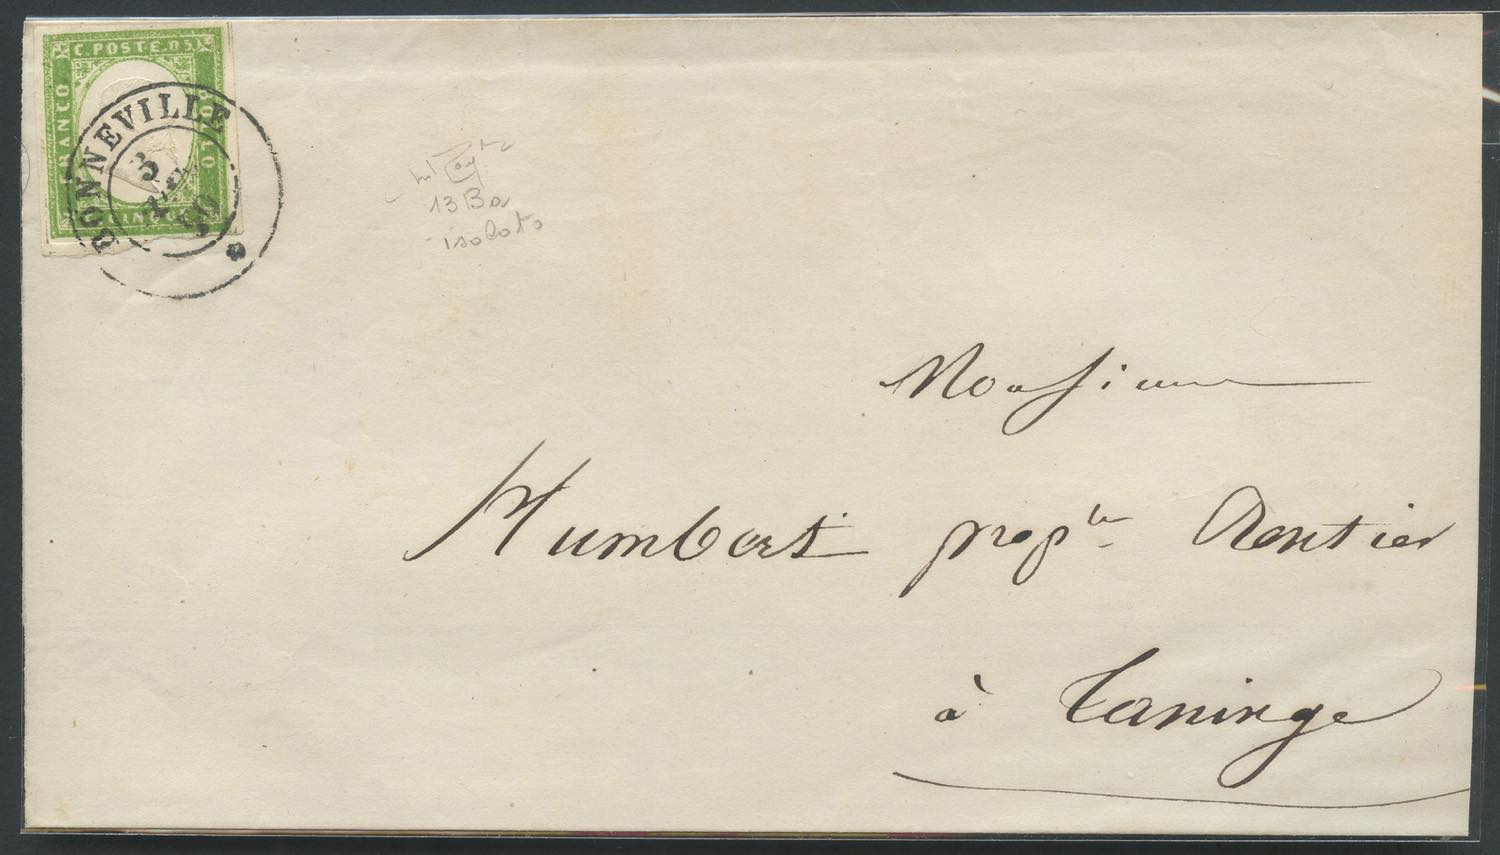 C. POSTE. 5
FRANCO
BOLLO
BONNEVILLE
3
13Ba
isolato
Monsieur
Humbert prop.re Rentier
à Taninge